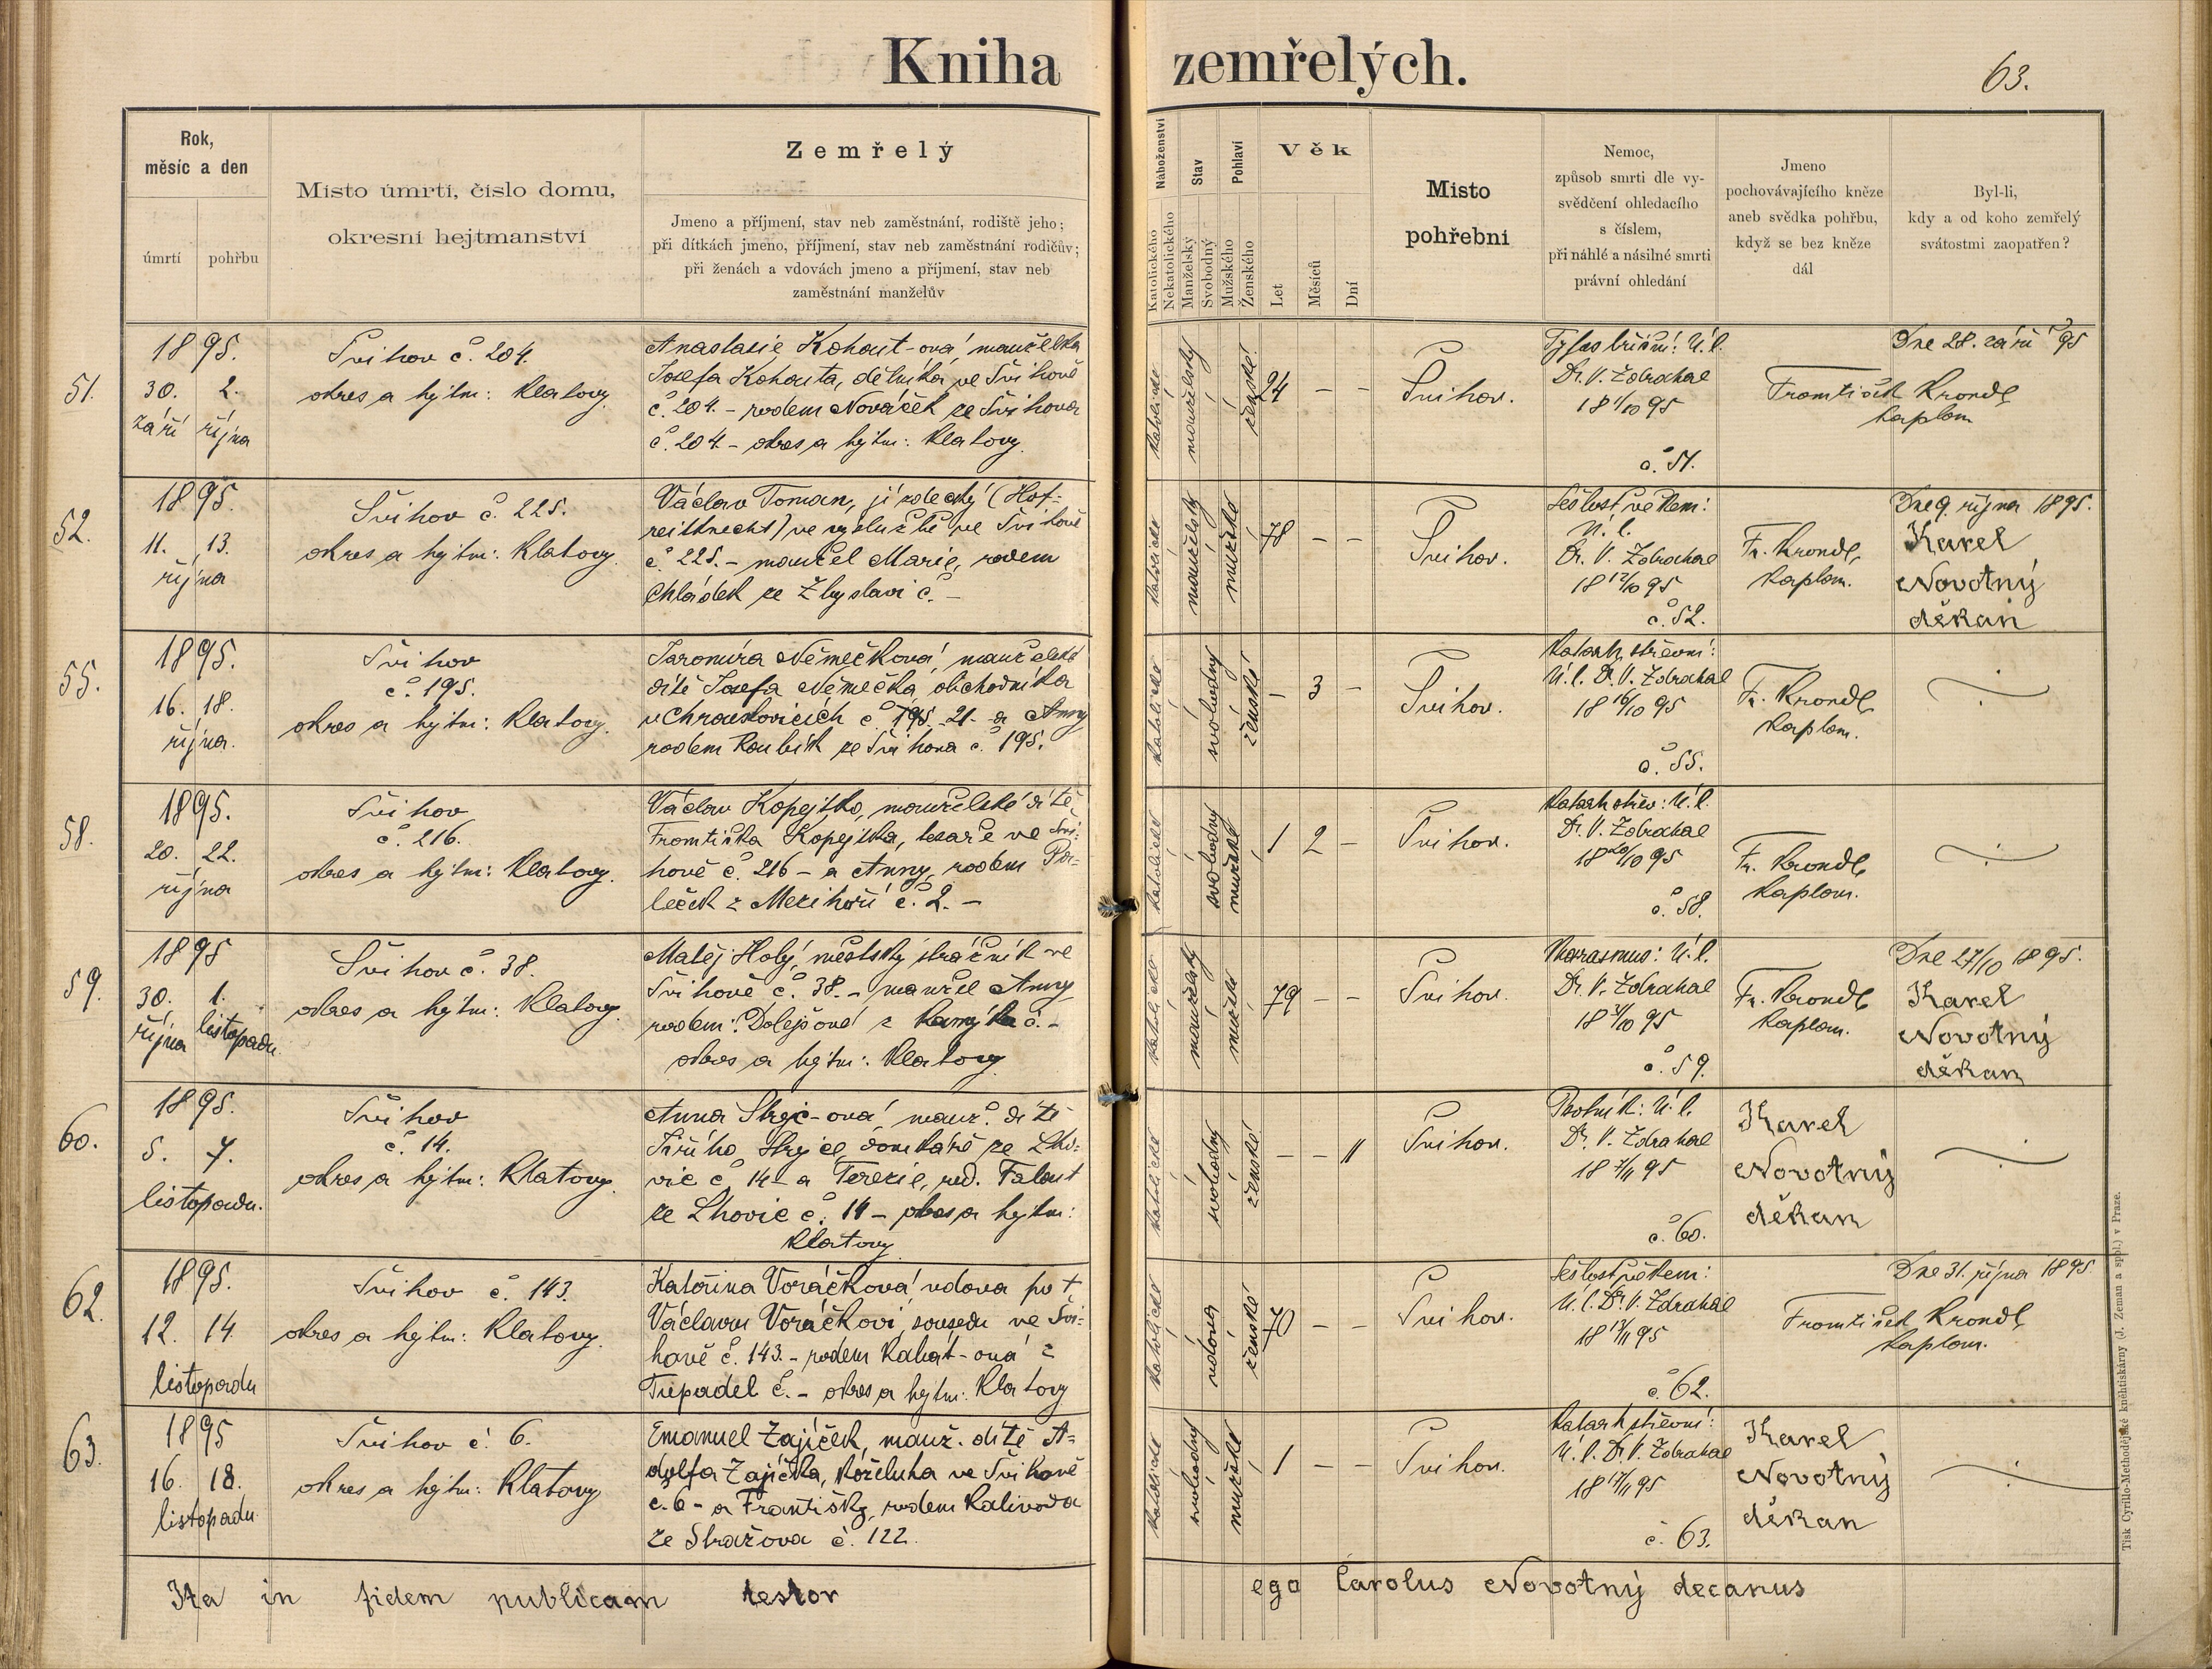 Kniha zemřelých.
63.
Rok,
měsíc a den
úmrtí
pohřbu
Místo úmrtí, číslo domu,
okresní hejtmanství
Zemřelý
Jmeno a příjmení, stav neb zaměstnání, rodiště jeho;
při dítkách jmeno, příjmení, stav neb zaměstnání rodičův;
při ženách a vdovách jmeno a příjmení, stav neb
zaměstnání manželův
Náboženství
Katolického
Nekatolického
Stav
Manželský
Svobodný
Pohlaví
Mužského
Ženského
Věk
Let
Měsíců
Dní
Místo
pohřební
Nemoc,
způsob smrti dle vy-
svědčení ohledacího
s číslem,
při náhlé a násilné smrti
právní ohledání
Jmeno
pochovávajícího kněze
aneb svědka pohřbu,
když se bez kněze
dál
Byl-li,
kdy a od koho zemřelý
svátostmi zaopatřen?
51.
1895.
30. 2.
září října
Švihov č. 204.
okres a hejtm: Klatovy
Anastasie Kohout-ová, manželka
Josefa Kohouta, dělníka ve Švihově
č. 204. - rodem Nováček ze Švihova
č. 204 - okres a hejtm: Klatovy.
katolické
manželský
ženské
24 - -
Švihov.
Tyfus břišní: Ú.l.
Dr. V. Zdrahal
18 1/10 95
č. 51.
František Krondl
kaplan
Dne 28. září 95
52.
1895.
11. 13.
října
Švihov č. 225.
okres a hejtm: Klatovy
Václav Toman, jízdecký (Hof-
reitknecht) ve výslužbě ve Švihově
č. 225. - manžel Marie, rodem
Chládek ze Zbyslavi č. -
katolické
manželský
mužské
78 - -
Švihov.
Sešlost věkem:
Ú. l.
Dr. V. Zdrahal
18 12/10 95
č. 52.
Fr. Krondl,
kaplan.
Dne 9. října 1895.
Karel
Novotný
děkan
55.
1895.
16. 18.
října.
Švihov
č. 195.
okres a hejtm: Klatovy.
Jaromíra Němečková, manželské
dítě Josefa Němečka, obchodníka
v Chroustovicích č. 195. 21. - a Anny
rodem Roubík ze Švihova č. 195.
katolické
svobodný
ženské
- 3 -
Švihov.
Katarh střevní:
Ú.l. Dr. V. Zdrahal
18 16/10 95
č. 55.
Fr. Krondl,
kaplan.
58.
1895.
20. 22.
října
Švihov
č. 216.
okres a hejtm: Klatovy.
Václav Kopejtko, manželské dítě
Františka Kopejtka, tesaře ve Švi-
hově č. 216 - a Anny, rodem
z Mezihoří č. 2. -
katolické
svobodný
mužské
1 2 -
Švihov.
Katarh střev: Ú.l.
Dr. V. Zdrahal
18 20/10 95
č. 58.
Fr. Krondl,
kaplan.
59.
1895
30. 1.
října listopadu
Švihov č. 38.
okres a hejtm: Klatovy
Matěj Holý, městský strážník ve
Švihově č. 38. - manžel Anny
rodem: Dolejšové z Kamýka č. -
okres a hejtm: Klatovy
katolické
manželský
mužské
79 - -
Švihov.
Marasmus: Ú.l.
Dr. V. Zdrahal
18 31/10 95
č. 59.
Fr. Krondl,
kaplan.
Dne 27/10 1895.
Karel
Novotný
děkan
60.
1895.
5. 7.
listopadu.
Švihov
č. 14.
okres a hejtm: Klatovy.
Anna Strejc-ová, manž. dítě
Jiřího Strejce, domkáře ze Lho-
vic č. 14 - a Terezie, rod. Falout
ze Lhovic č. 14 - okres a hejtm:
Klatovy
katolické
svobodný
ženské
- - 11
Švihov.
Psotník: Ú.l.
Dr. V. Zdrahal
18 7/11 95
č. 60.
Karel
Novotný
děkan
62.
1895.
12. 14.
listopadu
Švihov č. 143.
okres a hejtm: Klatovy.
Kateřina Voráčková, vdova po †
Václavu Voráčkovi, sousedu ve Švi-
hově č. 143. - rodem Kabát-ová z
Tupadel č. - okres a hejtm: Klatovy
katolické
vdova
ženské
70 - -
Švihov.
Sešlost věkem:
Ú.l. Dr. V. Zdrahal
18 13/11 95
č. 62.
František Krondl,
kaplan.
Dne 31. října 1895
63.
1895
16. 18.
listopadu
Švihov č. 6.
okres a hejtm: Klatovy
Emanuel Zajíček, manž. dítě A-
dolfa Zajíčka, koželuha ve Švihově
č. 6 - a Františky, rodem Kalivoda
ze Stražova č. 122.
katolické
svobodný
mužské
1 - -
Švihov.
Katarh střevní:
Ú.l. Dr. V. Zdrahal
18 17/11 95
č. 63.
Karel
Novotný
děkan
Ita in fidem publicam testor ego Carolus Novotný decanus
Tisk Cyrillo-Methodějské knihtiskárny (J. Zeman a spol.) v Praze.